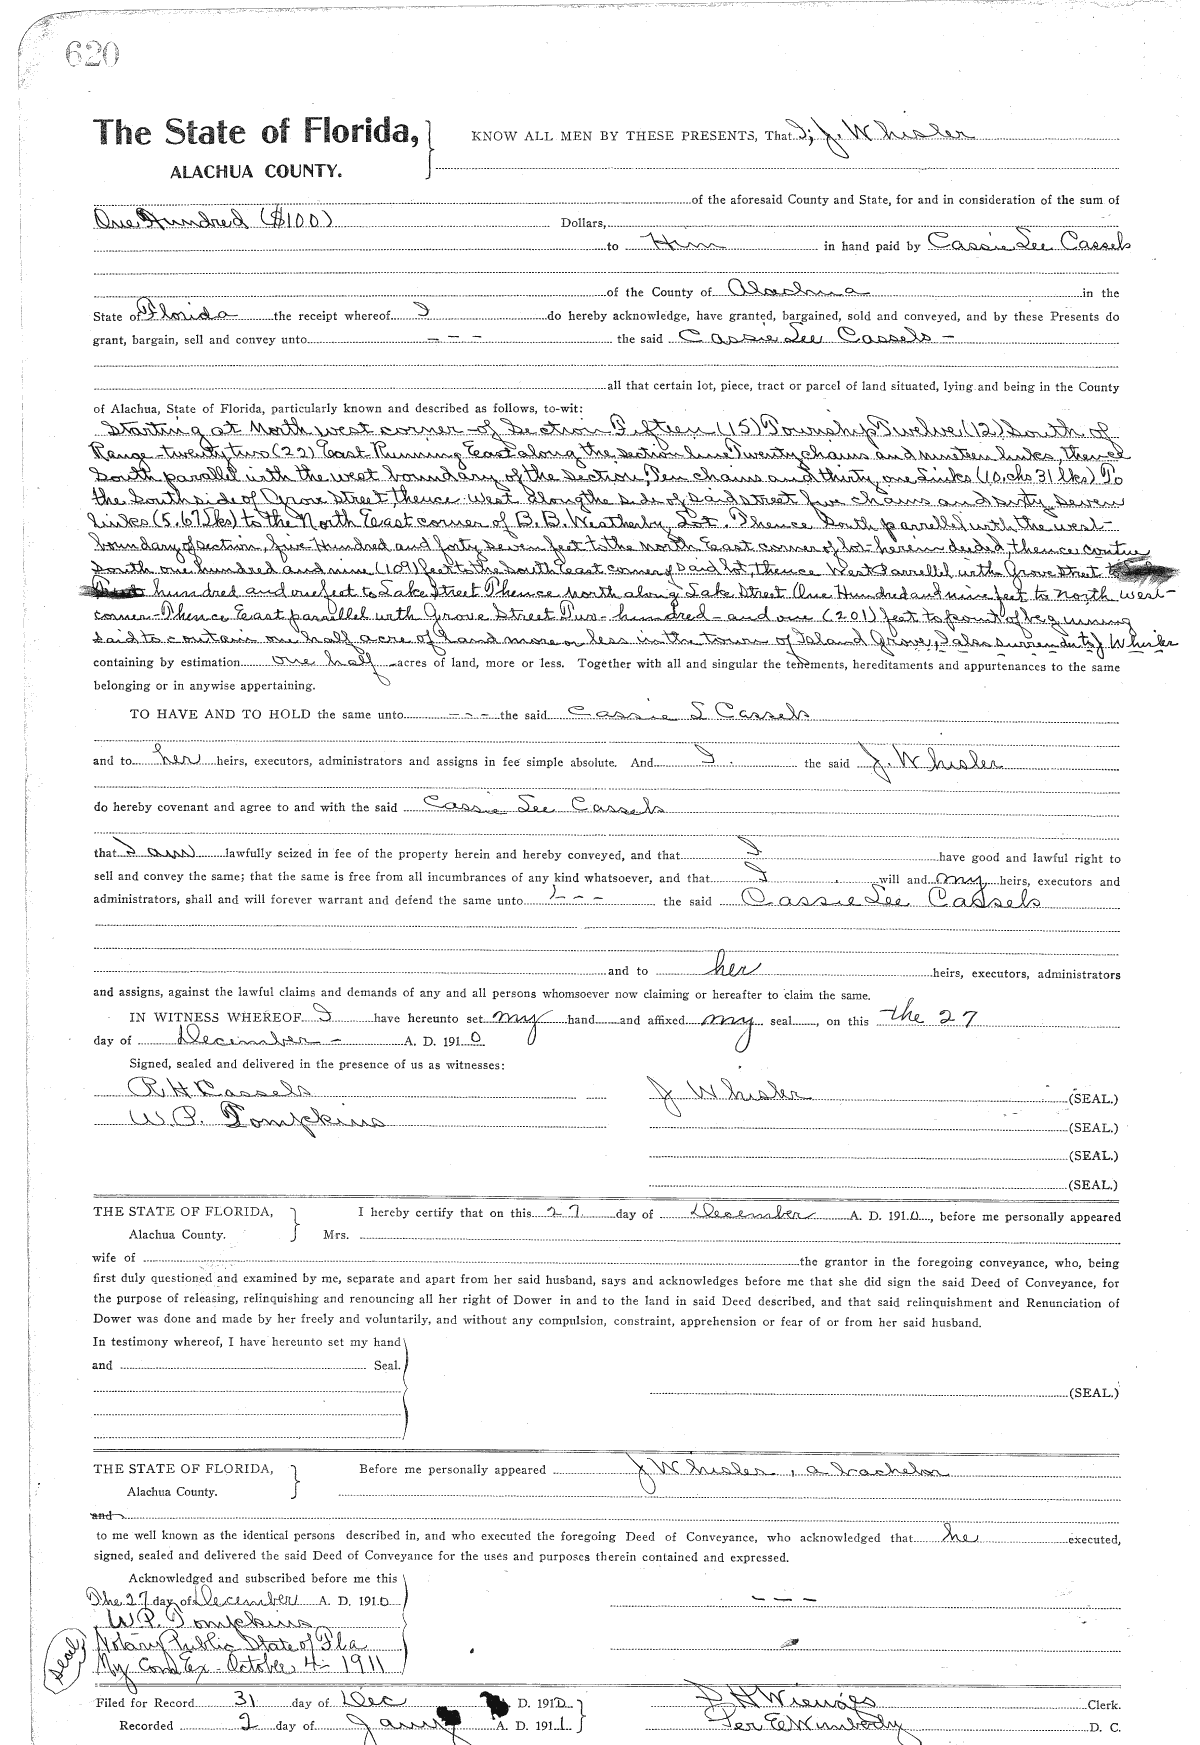 620
The State of Florida, KNOW ALL MEN BY THESE PRESENTS, That I, J. Whisler
ALACHUA COUNTY.
of the aforesaid County and State, for and in consideration of the sum of
One Hundred ($100) Dollars,
to Him in hand paid by Cassie Lee Cassels
of the County of Alachua in the
State of Florida the receipt whereof I do hereby acknowledge, have granted, bargained, sold and conveyed, and by these Presents do
grant, bargain, sell and convey unto - - - the said Cassie Lee Cassels -
all that certain lot, piece, tract or parcel of land situated, lying and being in the County
of Alachua, State of Florida, particularly known and described as follows, to-wit:
Starting at North west corner of Section Fifteen (15) Township Twelve (12) South of
Range twenty two (22) East Running East along the section line Twenty chains and nineteen links, thence
South parallel with the west boundary of the section, Ten chains and thirty one Links (10.chs 31 lks) To
the South side of Grove Street, thence west along the side of said street five chains and sixty seven
links (5.67 lks) to the North East corner of B.B. Weatherby Lot. Thence South parrellel with the west-
boundary of section, five Hundred and forty seven feet to the north East corner of lot herein deeded, thence contue
South one hundred and nine (109) feet to the South East corner of said lot, thence West Parrellel with Grove Street to
hundred and one feet to Lake Street Thence north along Lake Street One Hundred and nine feet to North west-
corner Thence East parrellel with Grove Street Two hundred and one (201) feet to point of beginning
said to contain one half acre of land more or less in the town of Island Grove, J Whisler
containing by estimation one half acres of land, more or less. Together with all and singular the tenements, hereditaments and appurtenances to the same
belonging or in anywise appertaining.
TO HAVE AND TO HOLD the same unto - - - the said Cassie L Cassels
and to her heirs, executors, administrators and assigns in fee simple absolute. And I. the said J. Whisler
do hereby covenant and agree to and with the said Cassie Lee Cassels
that I am lawfully seized in fee of the property herein and hereby conveyed, and that I have good and lawful right to
sell and convey the same; that the same is free from all incumbrances of any kind whatsoever, and that I will and my heirs, executors and
administrators, shall and will forever warrant and defend the same unto - - - the said Cassie Lee Cassels
and to her heirs, executors, administrators
and assigns, against the lawful claims and demands of any and all persons whomsoever now claiming or hereafter to claim the same.
IN WITNESS WHEREOF I have hereunto set my hand and affixed my seal, on this the 27
day of December - A. D. 1910
Signed, sealed and delivered in the presence of us as witnesses:
R H Cassels J Whisler (SEAL.)
W.P. Tompkins (SEAL.)
(SEAL.)
(SEAL.)
THE STATE OF FLORIDA, I hereby certify that on this 27 day of December A. D. 1910, before me personally appeared
Alachua County. Mrs.
wife of the grantor in the foregoing conveyance, who, being
first duly questioned and examined by me, separate and apart from her said husband, says and acknowledges before me that she did sign the said Deed of Conveyance, for
the purpose of releasing, relinquishing and renouncing all her right of Dower in and to the land in said Deed described, and that said relinquishment and Renunciation of
Dower was done and made by her freely and voluntarily, and without any compulsion, constraint, apprehension or fear of or from her said husband.
In testimony whereof, I have hereunto set my hand
and Seal.
(SEAL.)
THE STATE OF FLORIDA, Before me personally appeared J Whisler, a bachelor
Alachua County.
and
to me well known as the identical persons described in, and who executed the foregoing Deed of Conveyance, who acknowledged that he executed,
signed, sealed and delivered the said Deed of Conveyance for the uses and purposes therein contained and expressed.
Acknowledged and subscribed before me this
The 27 day of December A. D. 1910 - - -
W.P. Tompkins
Notary Public State of Fla
My Com Ex - October 4 - 1911
Seal
Filed for Record 31 day of Dec A. D. 1910 Clerk.
Recorded 2 day of Jany A. D. 1911 Per D. C.